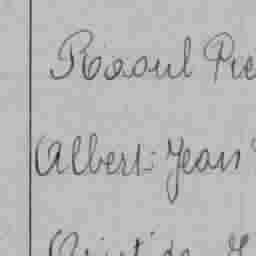 Raoul Pie
Albert-Jean